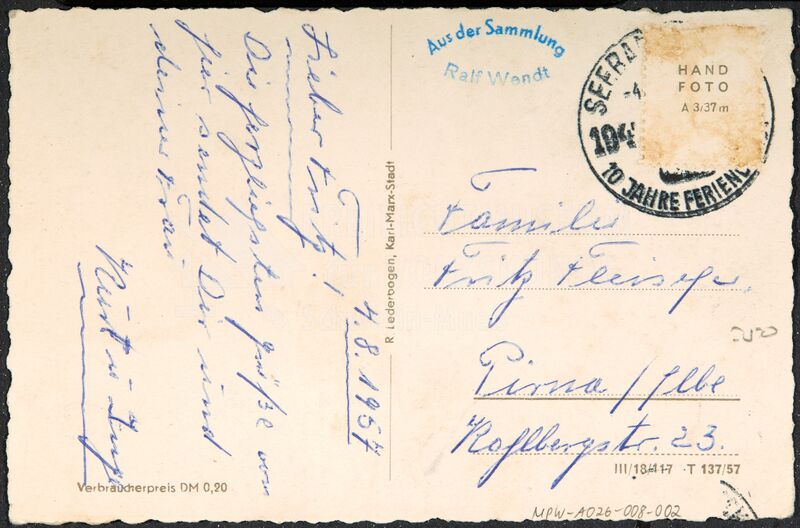 4.8.1957
Lieber Fritz!
Die herzlichsten Grüße von
hier sendet Dir und
deiner Frau
Kurt u. Inge
Aus der Sammlung
Ralf Wendt
10 JAHRE
HAND
FOTO
A 3/37 m
Familie
Fritz Fleischer
Pirna / Elbe
Kohlbergstr. 23.
R. Lederbogen, Karl-Marx-Stadt
III/18/117 · T 137/57
Verbraucherpreis DM 0,20
MPW-A026-008-002